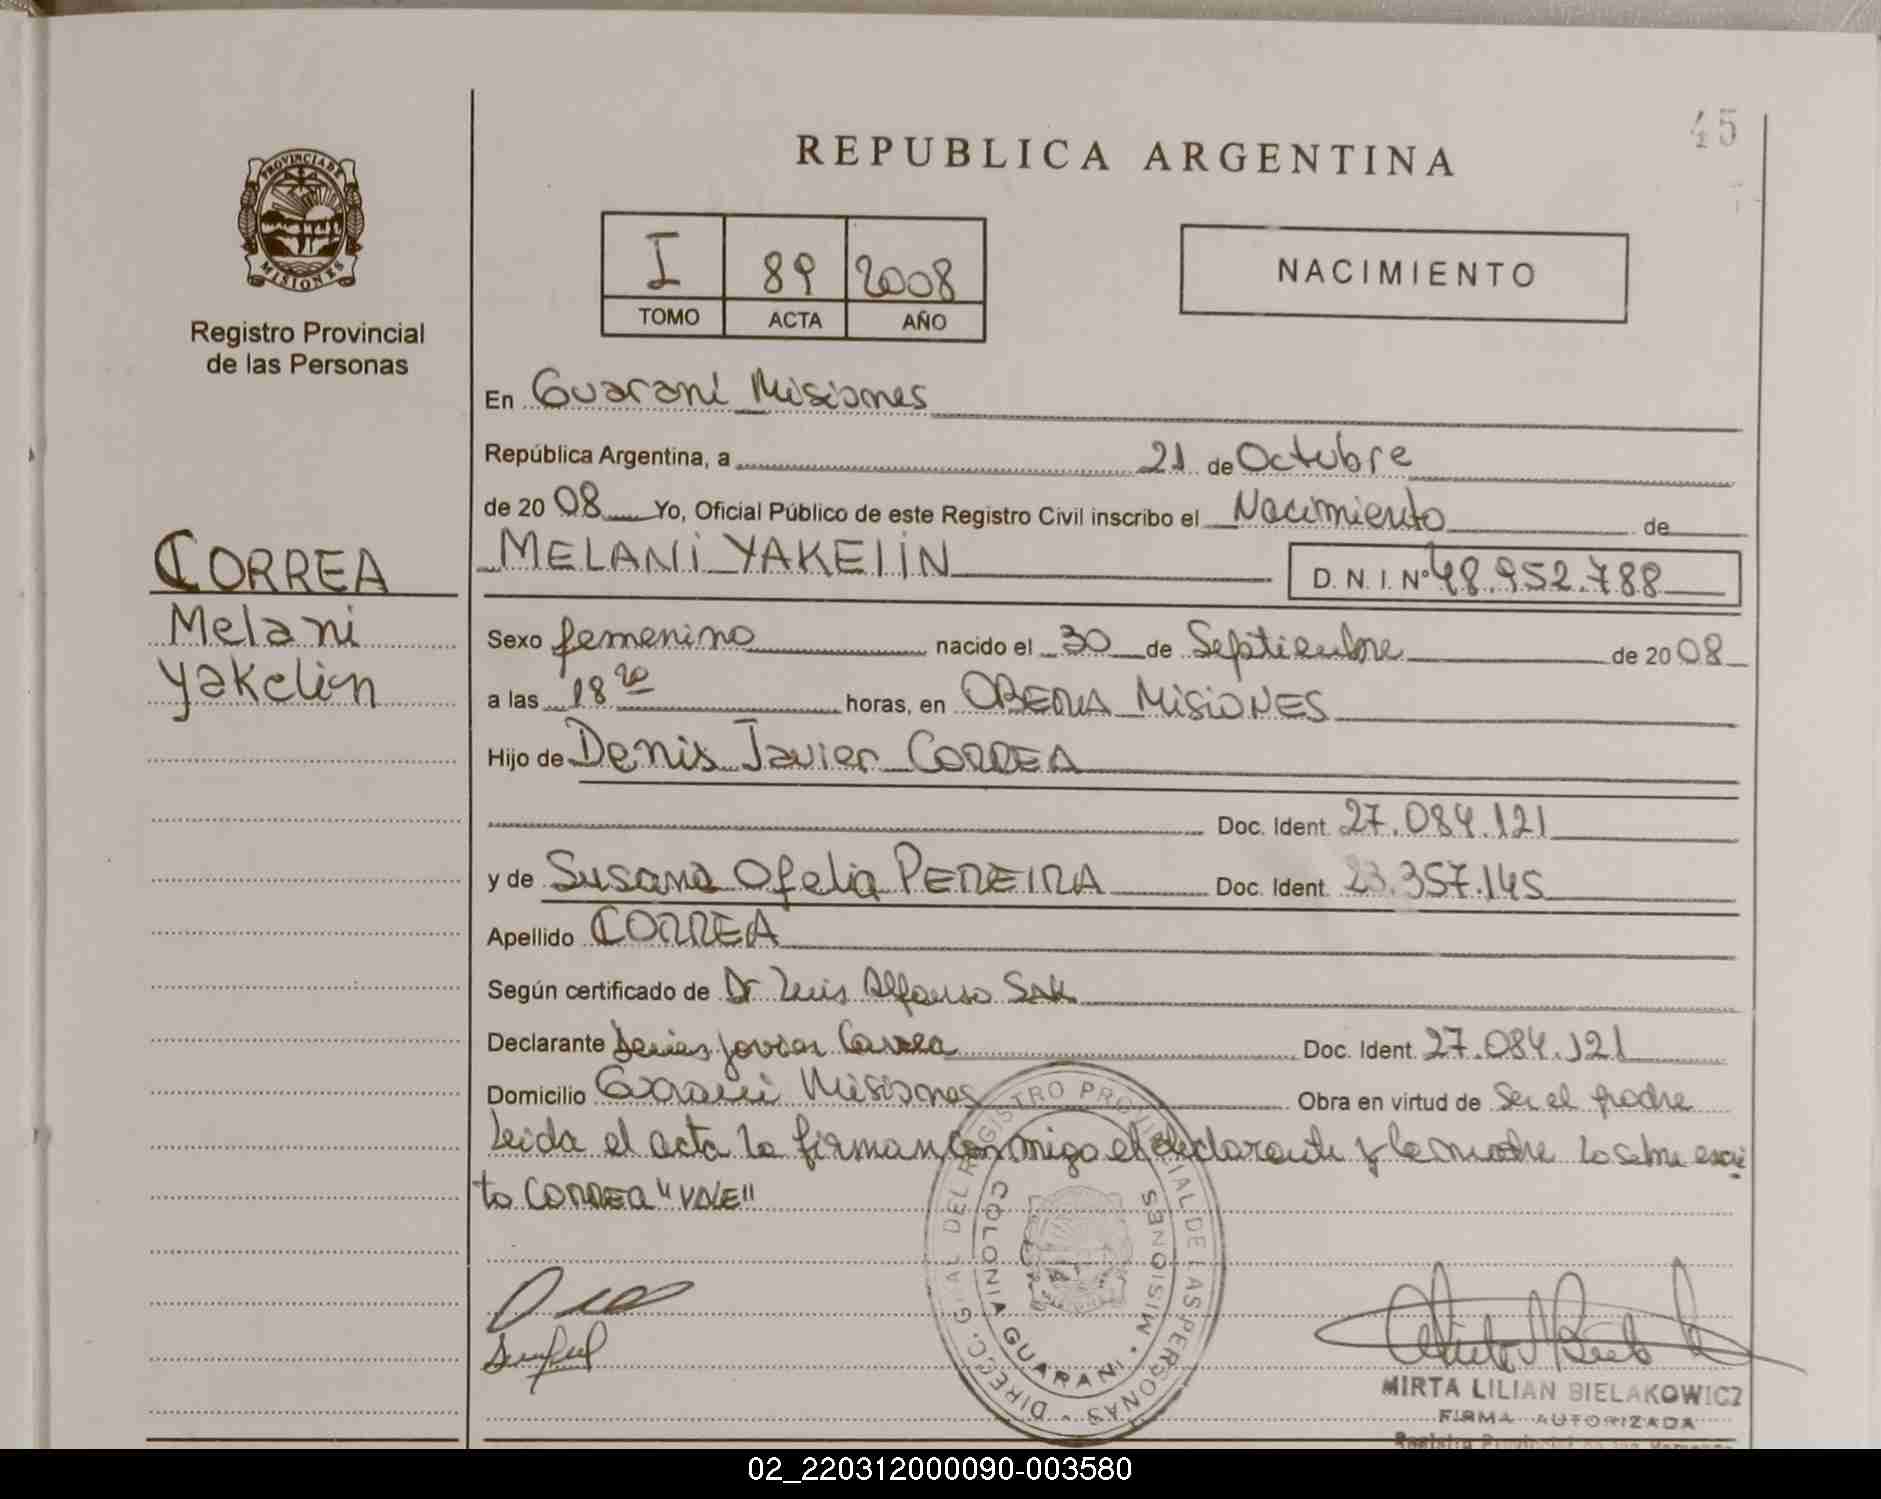 45
REPUBLICA ARGENTINA
PROVINCIA DE
MISIONES
Registro Provincial
de las Personas
I 89 2008
TOMO ACTA AÑO
NACIMIENTO
En Guaraní Misiones
República Argentina, a 21 de Octubre
de 20 08 Yo, Oficial Público de este Registro Civil inscribo el Nacimiento de
CORREA
Melani
Yakelin
MELANI YAKELIN D.N.I. Nº 48.952.788
Sexo femenino nacido el 30 de Septiembre de 20 08
a las 18 20 horas, en OBERA MISIONES
Hijo de Denis Javier CORREA
Doc. Ident. 27.084.121
y de Susana Ofelia PEREIRA Doc. Ident. 23.357.145
Apellido CORREA
Según certificado de Dr Luis Alfonso SAK
Declarante Denis Javier Correa Doc. Ident. 27.084.121
Domicilio Guaraní Misiones Obra en virtud de Ser el padre
Leida el acta la firman conmigo el declarante y la madre Lo sobre escri
to CORREA "VALE"
DIRECC. GRAL DEL REGISTRO PROVINCIAL DE LAS PERSONAS
COLONIA GUARANI • MISIONES
MIRTA LILIAN BIELAKOWICZ
FIRMA AUTORIZADA
Registro Provincial de las Personas
02_220312000090-003580